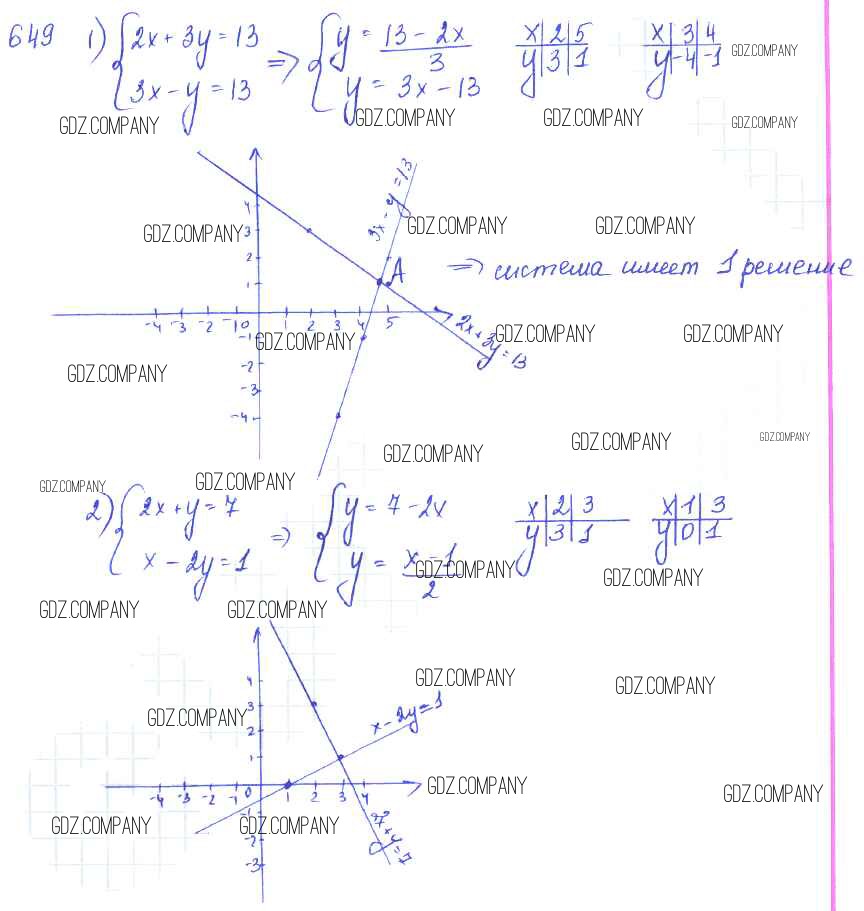 649 1) { 2x + 3y = 13 => { y = (13 - 2x)/3 x | 2 | 5 x | 3 | 4 GDZ.COMPANY
3x - y = 13 y = 3x - 13 y | 3 | 1 y | -4 | -1
GDZ.COMPANY GDZ.COMPANY GDZ.COMPANY GDZ.COMPANY
3x - y = 13
4
GDZ.COMPANY 3 GDZ.COMPANY GDZ.COMPANY
2 A => система имеет 1 решение
1
-4 -3 -2 -1 0 1 2 3 4 5 2x + 3y = 13
-1 GDZ.COMPANY GDZ.COMPANY GDZ.COMPANY
GDZ.COMPANY -2
-3
-4
GDZ.COMPANY GDZ.COMPANY GDZ.COMPANY
GDZ.COMPANY GDZ.COMPANY
2) { 2x + y = 7 => { y = 7 - 2x x | 2 | 3 x | 1 | 3
x - 2y = 1 y = (x - 1)/2 y | 3 | 1 y | 0 | 1
GDZ.COMPANY GDZ.COMPANY
GDZ.COMPANY GDZ.COMPANY
4 GDZ.COMPANY GDZ.COMPANY
3 x - 2y = 1
GDZ.COMPANY 2
1
-4 -3 -2 -1 0 1 2 3 4 GDZ.COMPANY GDZ.COMPANY
-1
GDZ.COMPANY GDZ.COMPANY
-2
-3